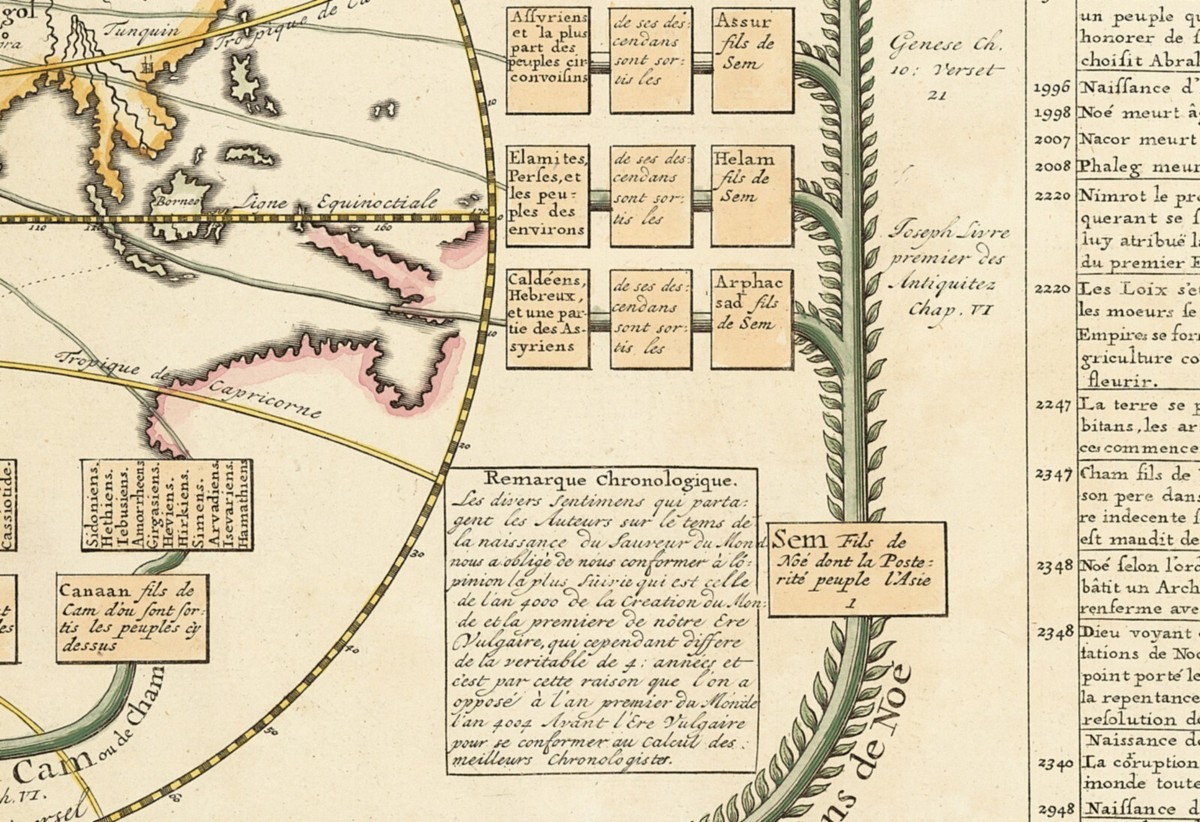 gol
Tunquin
Tropique de Ca
Borneo
Ligne Equinoctiale
110
160
170
0
10
10
20
30
40
50
60
Tropique de Capricorne
Assyriens
et la plus
part des
peuples cir
convoisins
de ses des:
cendans
sont sor:
tis les
Assur
fils de
Sem
Elamites,
Perses, et
les peu:
ples des
environs
de ses des:
cendans
sont sor:
tis les
Helam
fils de
Sem
Caldéens,
Hebreux,
et une par:
tie des As-
syriens
de ses des:
cendans
sont sor:
tis les
Arphac
sad fils
de Sem
Genese Ch.
10: Verset
21
Joseph Livre
premier des
Antiquitez
Chap. VI
Cassiotide.
Sidoniens.
Hethiens.
Iebusiens.
Amorrheens
Girgasiens.
Heviens.
Hirkiens.
Siniens.
Arvadiens.
Isevariens.
Hamathiens
Canaan fils de
Cam d'ou sont sor:
tis les peuples cy
dessus
Cam ou de Cham
h. VI.
ersel
Remarque Chronologique.
Les divers sentimens qui parta:
gent les Auteurs sur le tems de
la naissance du Sauveur du Mond
nous a obligé de nous conformer à l'ô:
pinion la plus suivie qui est celle
de l'an 4000 de la Creation du Mon:
de et la premiere de nôtre Ere
Vulgaire, qui cependant differe
de la veritable de 4: années et
c'est par cette raison que l'on a
opposé à l'an premier du Monde
l'an 4004 Avant l'Ere Vulgaire
pour se conformer au Calcul des:
meilleurs Chronologistes.
Sem Fils de
Noé dont la Poste:
rité peuple l'Asie
1
ns de Noé
un peuple q
honorer de s
choisit Abral
1996 Naissance d'
1998 Noé meurt â
2007 Nacor meurt
2008 Phaleg meur
2220 Nimrot le pre
querant se s
luy atribuë la
du premier E
2220 Les Loix s'et
les moeurs se
Empires se for
griculture co
fleurir.
2247 La terre se p
bitans, les ar
ces commence
2347 Cham fils de
son pere dans
re indecente s
est maudit de
2348 Noé selon l'ord
bâtit un Arch
renferme ave
2348 Dieu voyant
tations de Noé
point porté le
la repentance
resolution de
Naissance de
2340 La córuption
monde toute
2948 Naissance d